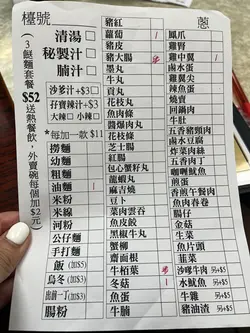 檯號
蔥
(3餸麵套餐
$52
送熱餐飲,外賣碗每個加2元)
清湯
秘製汁
腩汁
沙爹汁+$3
孖寶辣汁+$3
大辣 小辣
*每加一款$11
撈麵
幼麵
粗麵
油麵 1
米粉
米線
河粉
公仔麵
手打麵
飯(加$3)
烏冬(加$3)
出前一丁(加$3)
腸粉
豬紅
蘿蔔 1
豬皮
豬大腸
墨丸
牛丸
貢丸
花枝丸
魚肉條
醬爆肉丸
花枝卷
芝士腸
紅腸
包心蟹籽丸
龍蝦丸
麻吉燒
豆卜
菜肉雲吞
魚皮餃
黑椒牛丸
蟹柳
齋雞
牛栢葉
冬菇 1
魚蛋
牛腩
鳳爪
雞腎
雞中翼 1
鹵水蛋
雞翼尖
辣魚蛋
燒賣
回鍋肉
牛肚
五香豬頸肉
鹵水豆腐
炸菜肉絲
五香肉丁
咖喱魷魚
煎蛋
香煎午餐肉
魚肉春卷
腸仔
金菇
生菜
魚片頭
韮菜
沙嗲牛肉 另+$5
水魷魚 另+$5
牛雜 另+$5
牛筋 另+$5